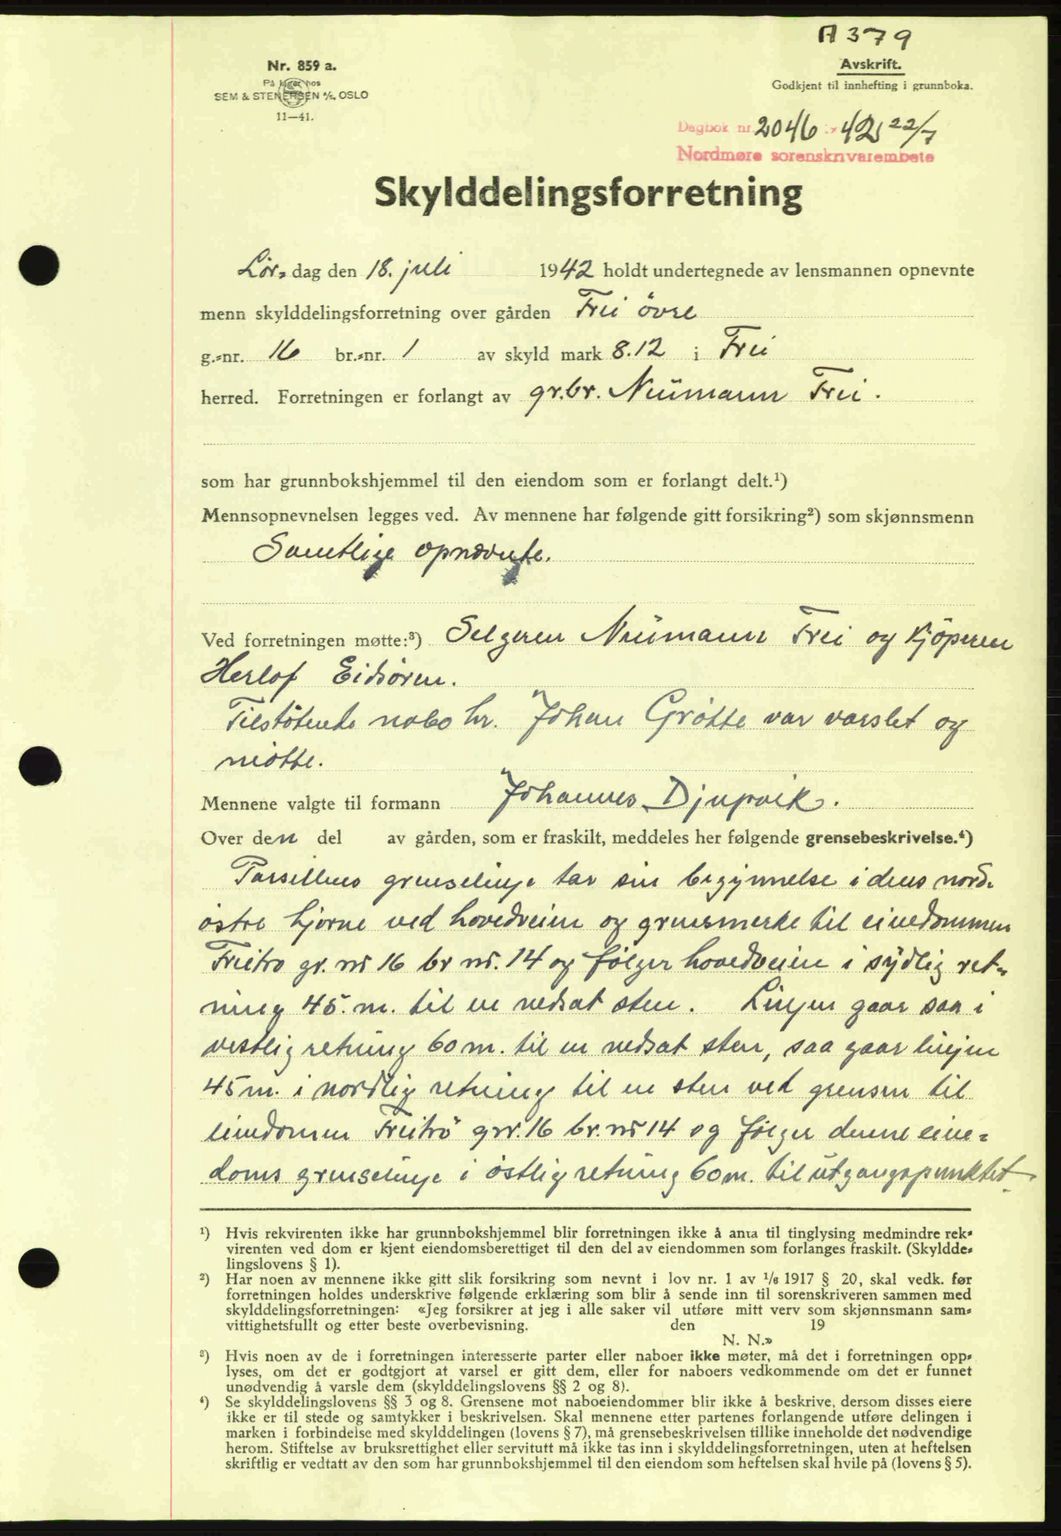 A 379
Nr. 859 a.
På lager hos
SEM & STENERSEN A/S, OSLO
11—41.
Avskrift.
Godkjent til innhefting i grunnboka.
Dagbok nr. 2046 42 22/7
Nordmøre sorenskrivarembete
Skylddelingsforretning
Lør- dag den 18. juli 1942 holdt undertegnede av lensmannen opnevnte
menn skylddelingsforretning over gården Frei övre
g.-nr. 16 br.-nr. 1 av skyld mark 8.12 i Frei
herred. Forretningen er forlangt av gr.br. Neumann Frei.
som har grunnbokshjemmel til den eiendom som er forlangt delt.¹)
Mennsopnevnelsen legges ved. Av mennene har følgende gitt forsikring²) som skjønnsmenn
Samtlige opnævnte.
Ved forretningen møtte:³) Selgeren Neumann Frei og kjöperen
Herlof Eidsören.
Tilstötende nabo hr. Johan Grötte var varslet og
mötte.
Mennene valgte til formann Johannes Djupvik.
Over den del av gården, som er fraskilt, meddeles her følgende grensebeskrivelse.⁴)
Parsellens grenselinje tar sin begynnelse i dens nord-
östre hjörne ved hovedveien og grensmerke til eiendommen
Freitrö gr. nr 16 br nr. 14 og fölger hovedveien i sydlig ret-
ning 45 m. til en nedsat sten. Linjen gaar saa i
vestlig retning 60 m. til en nedsat sten, saa gaar linjen
45 m. i nordlig retning til en sten ved grensen til
eiendommen Freitrö gnr. 16 br. nr 14 og fölger denne eien-
doms grenselinje i östlig retning 60 m. til utgangspunktet.
¹) Hvis rekvirenten ikke har grunnbokshjemmel blir forretningen ikke å anta til tinglysing medmindre rek-
virenten ved dom er kjent eiendomsberettiget til den del av eiendommen som forlanges fraskilt. (Skyldde-
lingslovens § 1).
²) Har noen av mennene ikke gitt slik forsikring som nevnt i lov nr. 1 av 1/6 1917 § 20, skal vedk. før
forretningen holdes underskrive følgende erklæring som blir å sende inn til sorenskriveren sammen med
skylddelingsforretningen: «Jeg forsikrer at jeg i alle saker vil utføre mitt verv som skjønnsmann sam-
vittighetsfullt og etter beste overbevisning. den 19
N. N.»
³) Hvis noen av de i forretningen interesserte parter eller naboer ikke møter, må det i forretningen opp-
lyses, om det er godtgjort at varsel er gitt dem, eller for naboers vedkommende om det er funnet
unødvendig å varsle dem (skylddelingslovens §§ 2 og 8).
⁴) Se skylddelingslovens §§ 3 og 8. Grensene mot naboeiendommer blir ikke å beskrive, dersom disses eiere
ikke er til stede og samtykker i beskrivelsen. Skal mennene etter partenes forlangende utføre delingen i
marken i forbindelse med skylddelingen (lovens § 7), må grensebeskrivelsen tillike inneholde det nødvendige
herom. Stiftelse av bruksrettighet eller servitutt må ikke tas inn i skylddelingsforretningen, uten at heftelsen
skriftlig er vedtatt av den som har grunnbokshjemmel til den eiendom som heftelsen skal hvile på (lovens § 5).